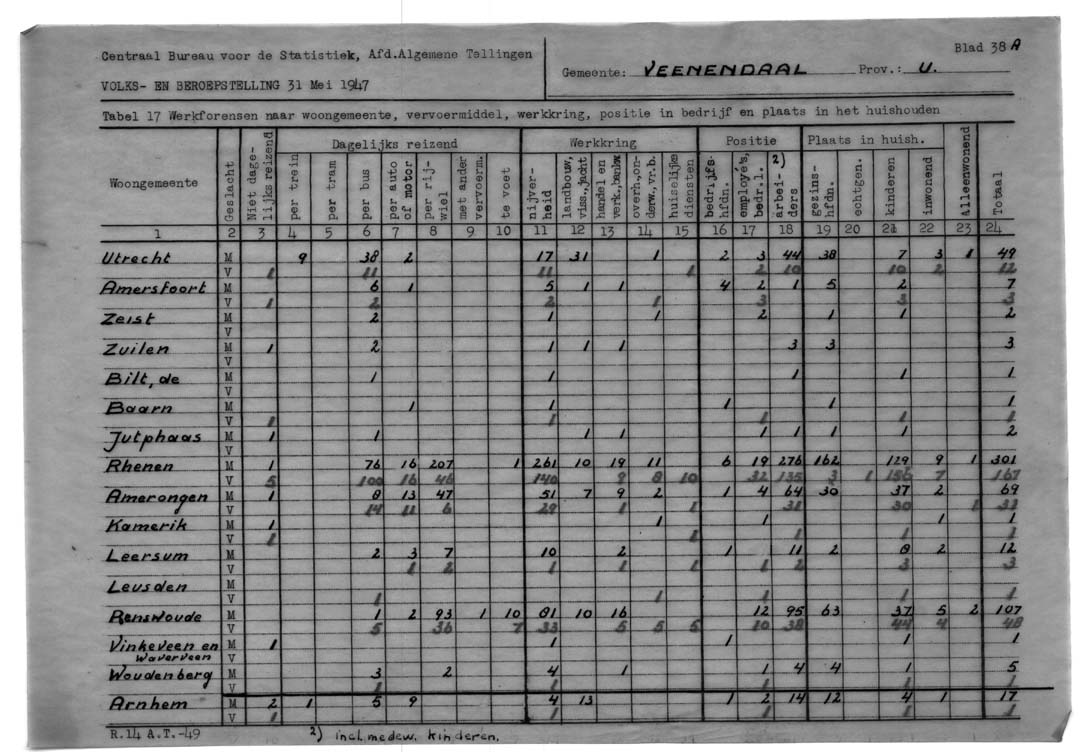 Centraal Bureau voor de Statistiek, Afd. Algemene Tellingen
VOLKS- EN BEROEPSTELLING 31 Mei 1947
Gemeente: VEENENDAAL Prov.: U.
Blad 38 A
Tabel 17 Werkforensen naar woongemeente, vervoermiddel, werkkring, positie in bedrijf en plaats in het huishouden
Woongemeente Geslacht Niet dagelijks reizend Dagelijks reizend Werkkring Positie Plaats in huish. Alleenwonend Totaal
per trein per tram per bus per auto of motor per rijwiel met ander vervoerm. te voet nijverheid landbouw, viss., jacht handel en verk., bankw overh., onderw., vr.b. huiselijke diensten bedrijfshfdn. employé's, bedr.l. 2) arbeiders gezinshfdn. echtgen. kinderen inwonend
1 2 3 4 5 6 7 8 9 10 11 12 13 14 15 16 17 18 19 20 21 22 23 24
Utrecht M 9 38 2 17 31 1 2 3 44 38 7 3 1 49
V 1 11 11 1 2 10 10 2 12
Amersfoort M 6 1 5 1 1 4 2 1 5 2 7
V 1 2 2 1 3 3 3
Zeist M 2 1 1 2 1 1 2
V
Zuilen M 1 2 1 1 1 3 3 3
V
Bilt, de M 1 1 1 1 1
V
Baarn M 1 1 1 1 1
V 1 1 1 1 1
Jutphaas M 1 1 1 1 1 1 1 1 2
V
Rhenen M 1 76 16 207 1 261 10 19 11 6 19 276 162 129 9 1 301
V 5 100 16 46 140 9 8 10 32 135 3 1 156 7 167
Amerongen M 1 8 13 47 51 7 9 2 1 4 64 30 37 2 69
V 14 11 6 29 1 1 31 30 1 31
Kamerik M 1 1 1 1 1
V 1 1 1 1 1
Leersum M 2 3 7 10 2 1 11 2 8 2 12
V 1 2 1 1 1 1 2 3 3
Leusden M
V 1 1 1 1 1
Renswoude M 1 2 93 1 10 81 10 16 12 95 63 37 5 2 107
V 5 36 7 33 5 5 5 10 38 44 4 48
Vinkeveen en M 1 1 1 1 1
Waverveen V
Woudenberg M 3 2 4 1 1 4 4 1 5
V 1 1 1 1 1
Arnhem M 2 1 5 9 4 13 1 2 14 12 4 1 17
V 1 1 1 1 1
R.14 A.T.-49
2) incl. medew. kinderen.